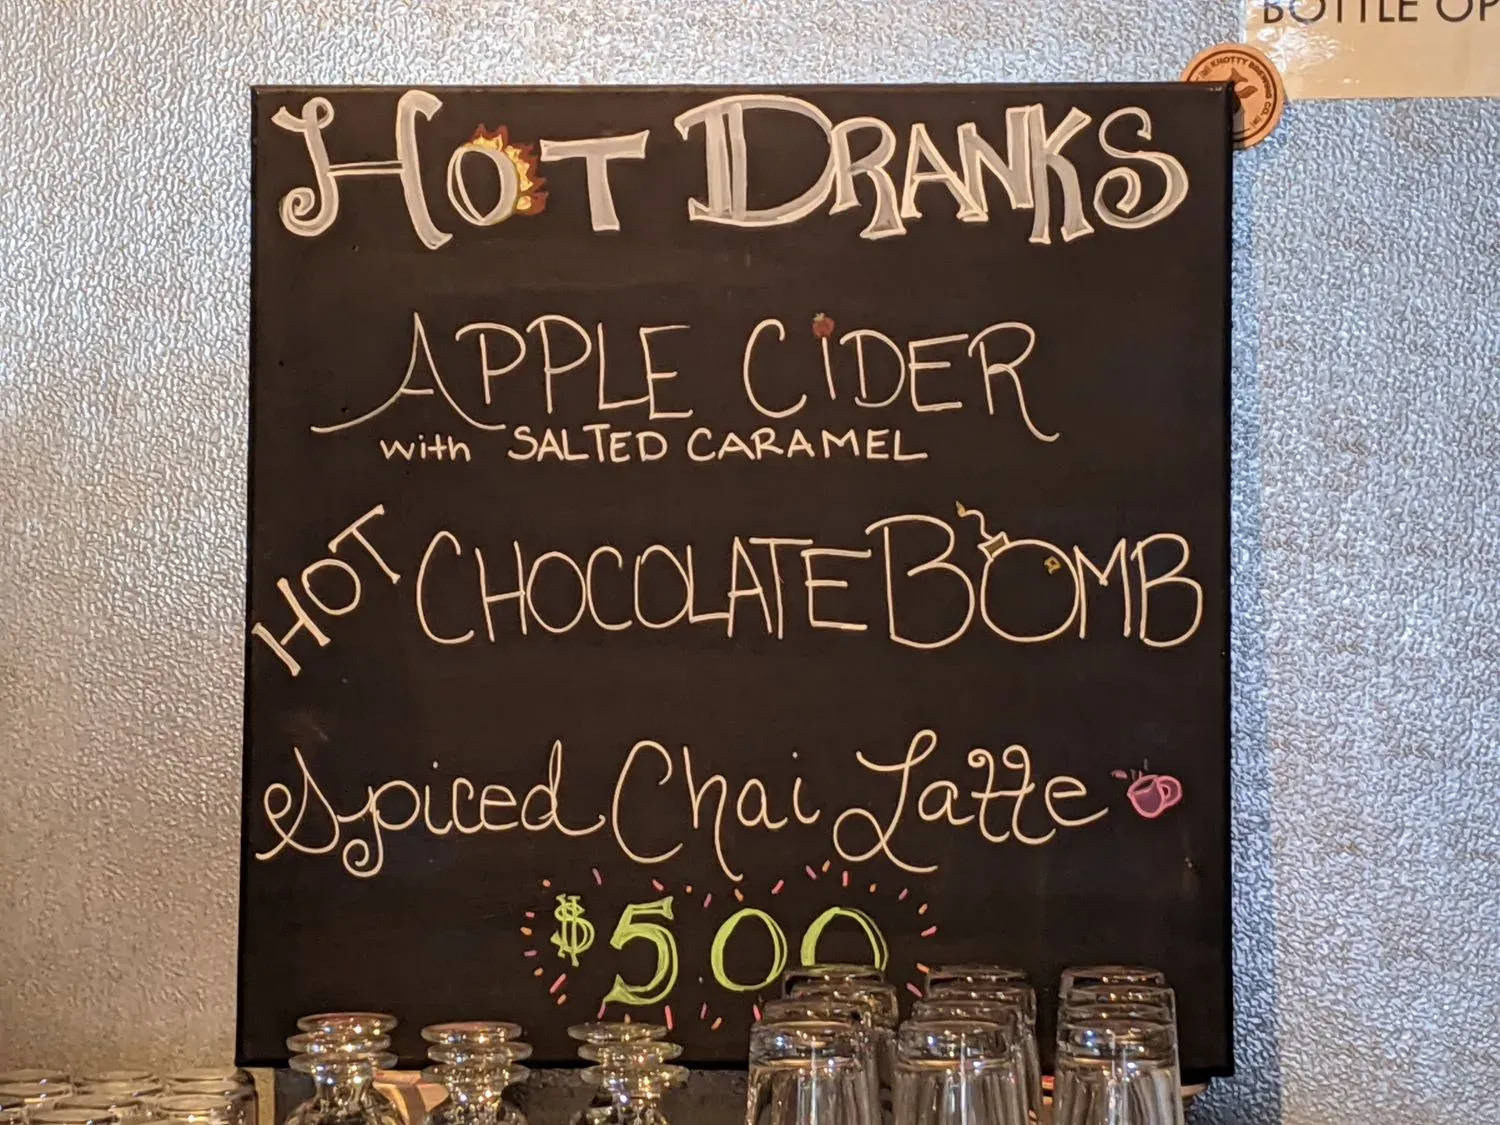 BOTTLE OP
KNOTTY BREWING CO.
HOT DRANKS
APPLE CiDER
with SALTED CARAMEL
HOT CHOCOLATE BOMB
Spiced Chai Latte
$5.00